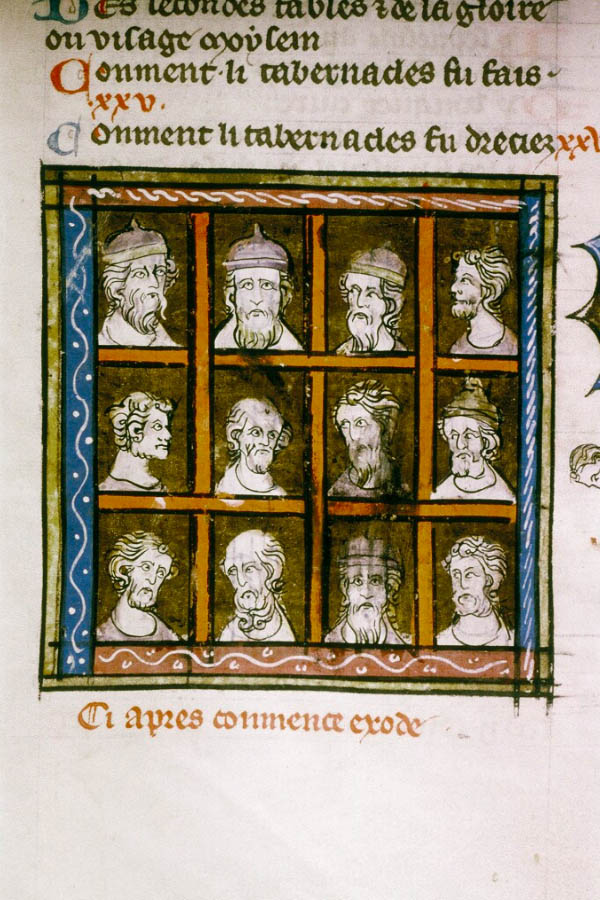 Des secondes tables ⁊ de la gloire
ou visage moysem
Conment li tabernacles fu fais ·
·xxv·
Conment li tabernacles fu dreciez xxv
Ci apres conmence exode